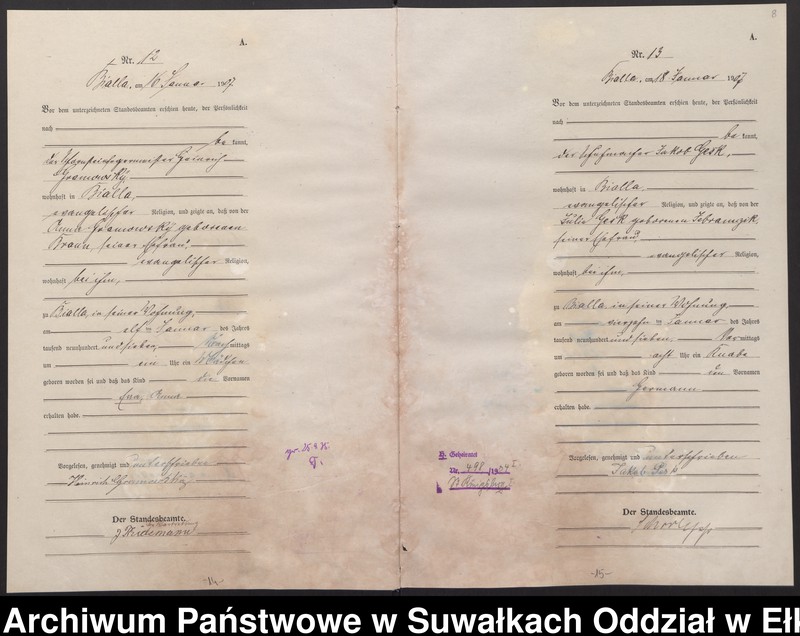 8
A.
Nr. 12
Bialla, am 16 Januar 1907.
Vor dem unterzeichneten Standesbeamten erschien heute, der Persönlichkeit
nach
be kannt,
der Schornsteinfegermeister Heinrich
Gramowsky
wohnhaft in Bialla,
evangelischer Religion, und zeigte an, daß von der
Anna Gramowsky geborenen
Braun, seiner Ehefrau,
evangelischer Religion,
wohnhaft bei ihm,
zu Bialla in seiner Wohnung,
am elf ten Januar des Jahres
tausend neunhundert und sieben, Nachmittags
um ein Uhr ein Mädchen
geboren worden sei und daß das Kind die Vornamen
Eva, Anna
erhalten habe.
Vorgelesen, genehmigt und unterschrieben
Heinrich Gramowsky
Der Standesbeamte.
In Vertretung
Heidemann
-14-
gr. H & K.
A.
Nr. 13
Bialla, am 18 Januar 1907
Vor dem unterzeichneten Standesbeamten erschien heute, der Persönlichkeit
nach
be kannt,
der Schuhmacher Jakob Gesk,
wohnhaft in Bialla
evangelischer Religion, und zeigte an, daß von der
Julie Gesk geborenen
seiner Ehefrau,
evangelischer Religion,
wohnhaft bei ihm,
zu Bialla in seiner Wohnung,
am vierzehn ten Januar des Jahres
tausend neunhundert und sieben, Vor mittags
um acht Uhr ein Knabe
geboren worden sei und daß das Kind den Vornamen
Hermann
erhalten habe.
Vorgelesen, genehmigt und unterschrieben
Jakob Gesk
Der Standesbeamte.
-15-
Nr. 498
Archiwum Państwowe w Suwałkach Oddział w Ełk